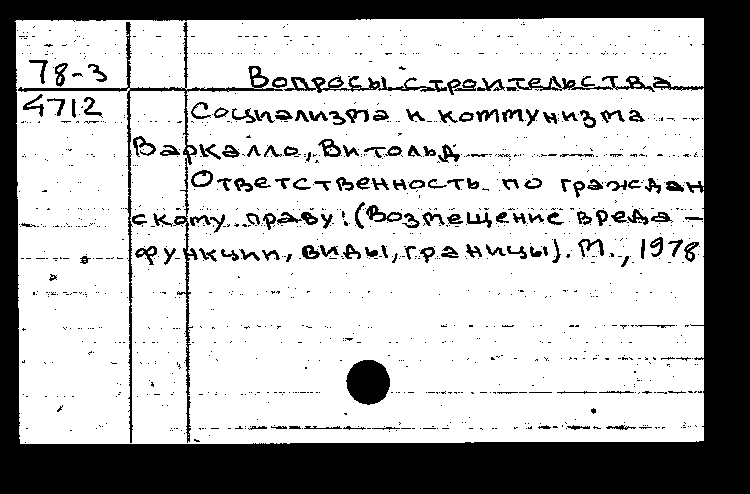 78-3 Вопросы строительства
4712 социализма и коммунизма
Варкалло, Витольд
Ответственность по граждан
скому праву: (Возмещение вреда -
функции, виды, границы). М., 1978